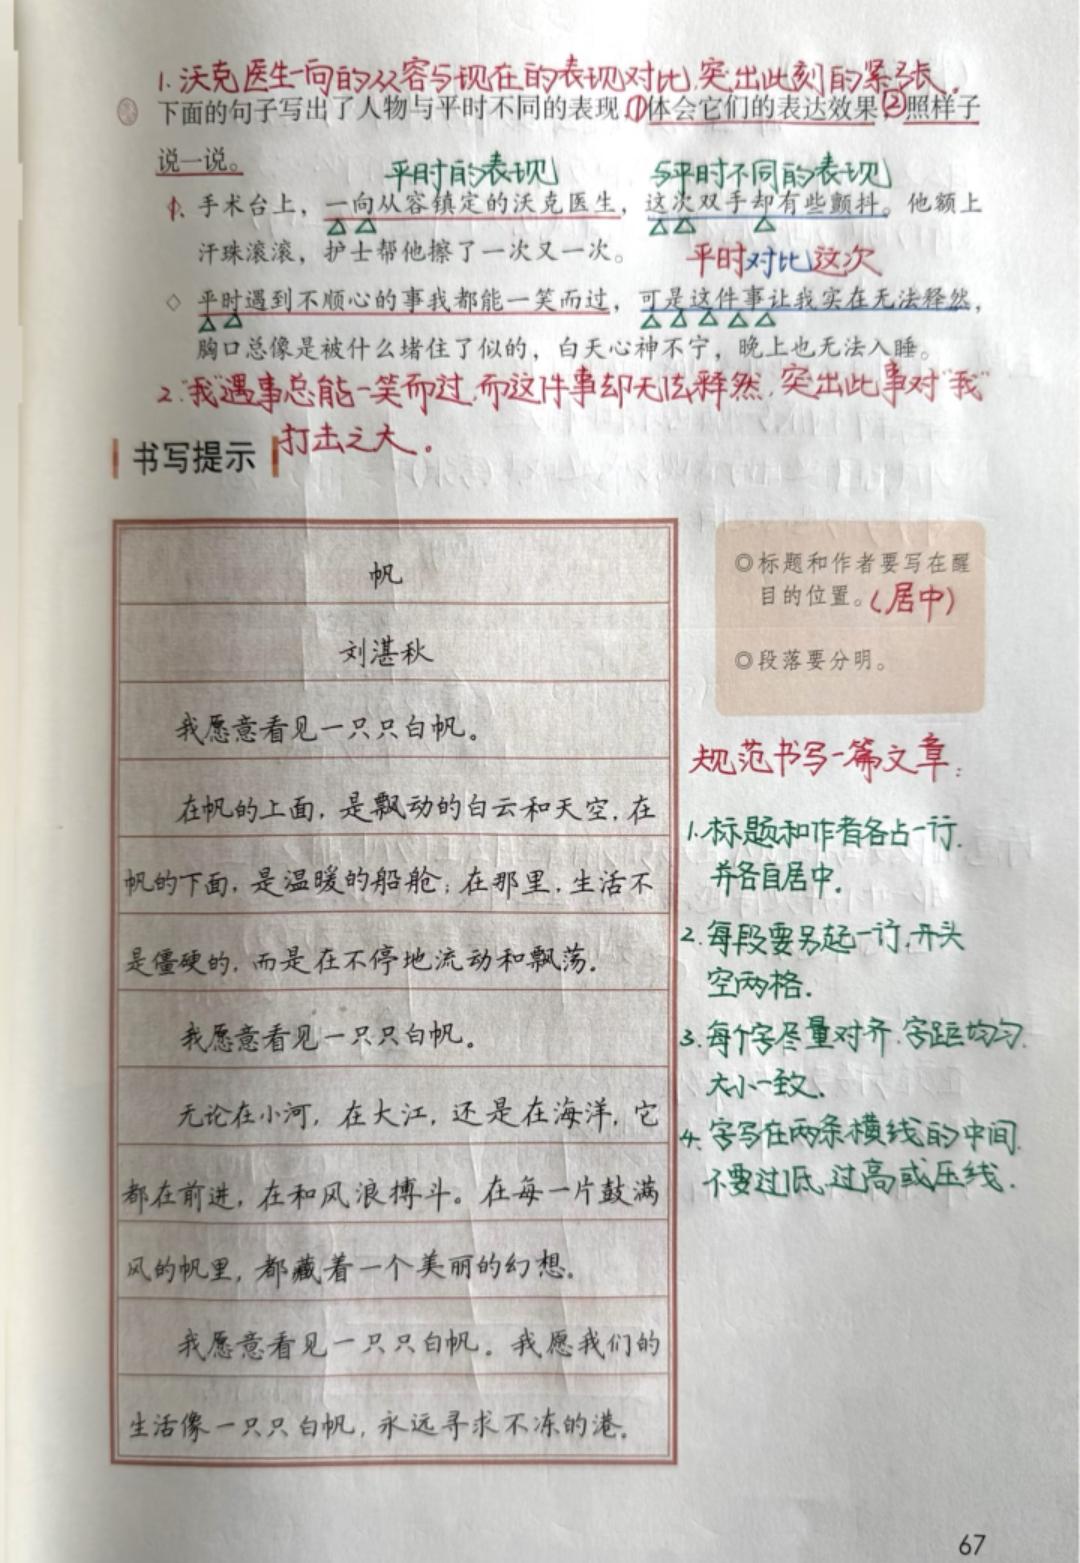 1.沃克医生一向的从容与现在的表现对比,突出此刻的紧张。
下面的句子写出了人物与平时不同的表现,①体会它们的表达效果②照样子
说一说。
平时的表现 与平时不同的表现
手术台上，一向从容镇定的沃克医生，这次双手却有些颤抖。他额上
汗珠滚滚，护士帮他擦了一次又一次。
平时对比这次
◇ 平时遇到不顺心的事我都能一笑而过，可是这件事让我实在无法释然，
胸口总像是被什么堵住了似的，白天心神不宁，晚上也无法入睡。
2."我"遇事总能一笑而过,而这件事却无法释然,突出此事对"我"
打击之大。
书写提示
帆
刘湛秋
我愿意看见一只只白帆。
在帆的上面，是飘动的白云和天空，在
帆的下面，是温暖的船舱；在那里，生活不
是僵硬的，而是在不停地流动和飘荡。
我愿意看见一只只白帆。
无论在小河，在大江，还是在海洋，它
都在前进，在和风浪搏斗。在每一片鼓满
风的帆里，都藏着一个美丽的幻想。
我愿意看见一只只白帆。我愿我们的
生活像一只只白帆，永远寻求不冻的港。
◎标题和作者要写在醒
目的位置。(居中)
◎段落要分明。
规范书写一篇文章：
1.标题和作者各占一行,
并各自居中.
2.每段要另起一行,开头
空两格.
3.每个字尽量对齐,字距均匀,
大小一致.
4.字写在两条横线的中间,
不要过低,过高或压线.
67